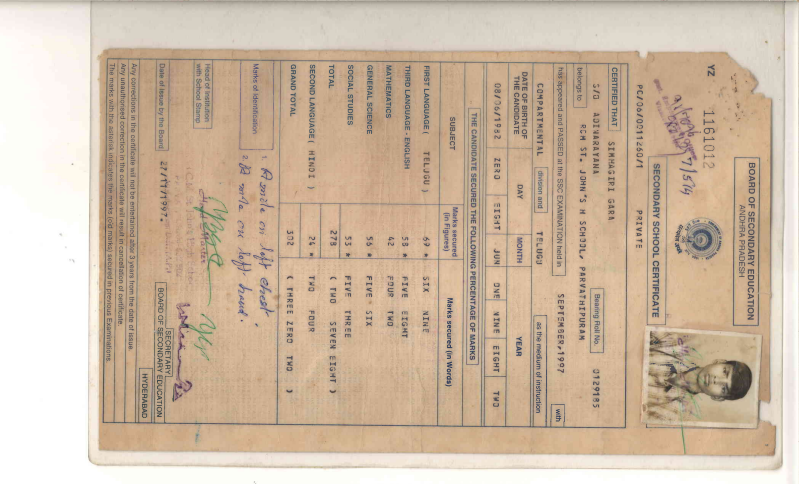 BOARD OF SECONDARY EDUCATION
ANDHRA PRADESH
YZ 1161012
SECONDARY SCHOOL CERTIFICATE
PC/06/0011260/1 PRIVATE
CERTIFIED THAT SIMMAGIRI GARA Bearing Roll No. 0129185
S/O ADINARAYANA
belongs to RCM ST. JOHN'S H SCHOOL, PARVATHIPURAM
has appeared and PASSED at the SSC EXAMINATION held in SEPTEMBER,1997 with
COMPARTMENTAL division and TELUGU as the medium of instruction
DATE OF BIRTH OF THE CANDIDATE DAY MONTH YEAR
08/06/1982 ZERO EIGHT JUN ONE NINE EIGHT TWO
THE CANDIDATE SECURED THE FOLLOWING PERCENTAGE OF MARKS
SUBJECT Marks secured (in Figures) Marks secured (in Words)
FIRST LANGUAGE( TELUGU ) 69 * SIX NINE
THIRD LANGUAGE - ENGLISH 58 * FIVE EIGHT
MATHEMATICS 42 FOUR TWO
GENERAL SCIENCE 56 * FIVE SIX
SOCIAL STUDIES 53 * FIVE THREE
TOTAL 278 ( TWO SEVEN EIGHT )
SECOND LANGUAGE( HINDI ) 24 * TWO FOUR
GRAND TOTAL 302 ( THREE ZERO TWO )
Marks of Identification 1. A mole on left chest.
2. A mole on left hand.
Head of Institution
with School Stamp
SECRETARY
Date of issue by the Board 27/11/1997. BOARD OF SECONDARY EDUCATION HYDERABAD
Any corrections in the certificate will not be entertained after 3 years from the date of issue.
Any unauthorised correction in the certificate will result in cancellation of certificate.
The marks with the asterisk indicates the marks (old marks) secured in previous Examinations.